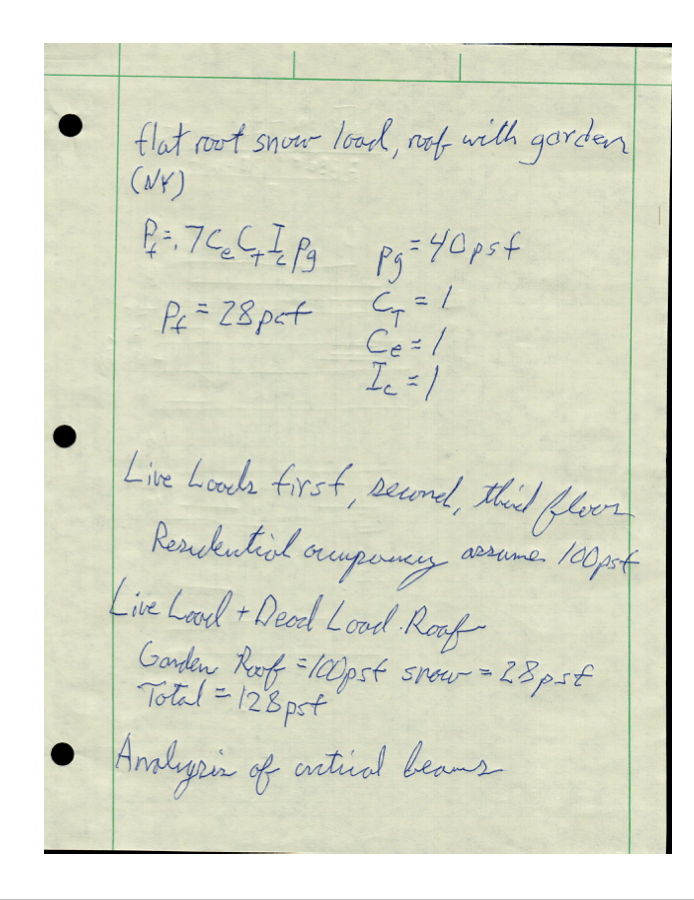 flat roof snow load, roof with garden
(NY)
Pf = .7 Ce CT Ic pg
pg = 40 psf
Pf = 28 psf
CT = 1
Ce = 1
Ic = 1
Live Loads first, second, third floor
Residential occupancy assume 100 psf
Live Load + Dead Load Roof
Garden Roof = 100 psf snow = 28 psf
Total = 128 psf
Analysis of critical beams